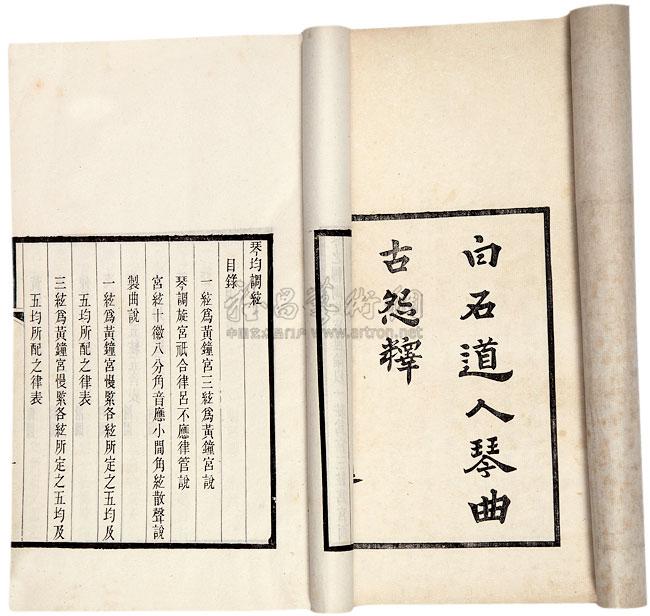 白石道人琴曲
古怨釋
琴均調絃
目錄
一絃為黃鐘宮三絃為黃鐘宮說
琴調旋宮祇合律呂不應律管說
宮絃十徽八分角音應小間角絃散聲說
製曲說
一絃為黃鐘宮慢緊各絃所定之五均及
五均所配之律表
三絃為黃鐘宮慢緊各絃所定之五均及
五均所配之律表
雅昌藝術網
中國艺术品门户 www.artron.net